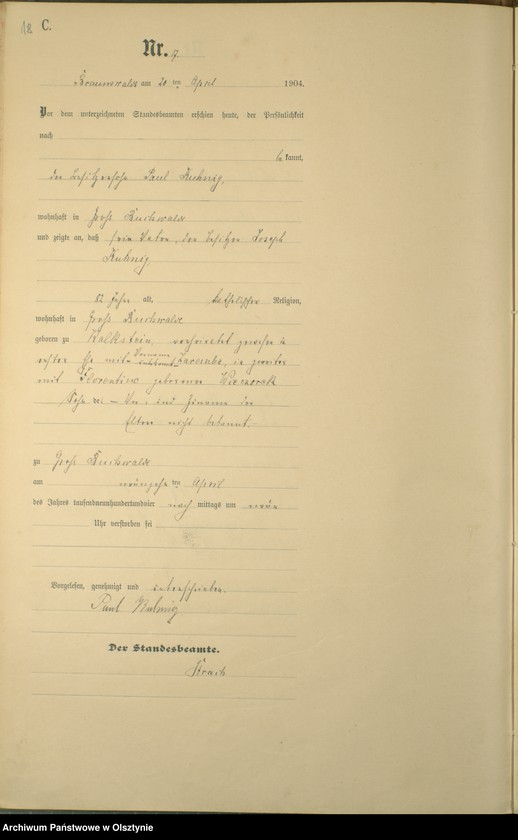 12 C.
Nr. 7
am 20 ten April 1904.
Vor dem unterzeichneten Standesbeamten erschien heute, der Persönlichkeit
nach
be kannt,
der Besitzersohn Paul Kuhnig,
wohnhaft in Groß Buchwalde
und zeigte an, daß sein Vater, der Besitzer Joseph
Kuhnig
82 Jahre alt, katholischer Religion,
wohnhaft in Groß Buchwalde
geboren zu Kalkstein, verheiratet gewesen in
erster Ehe mit Vorname unbekannt in zweiter
mit Florentine geborenen
Sohn der Vor- und Zuname der
Eltern nicht bekannt.
zu Groß Buchwalde
am neunzehn ten April
des Jahres tausendneunhundertundvier nach mittags um neun
Uhr verstorben sei
Vorgelesen, genehmigt und unterschrieben.
Paul Kuhnig
Der Standesbeamte.
Archiwum Państwowe w Olsztynie